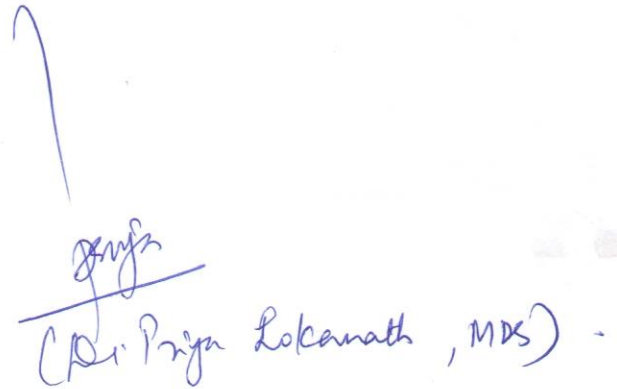 Priya
(Dr. Priya Lokanath, MDS).